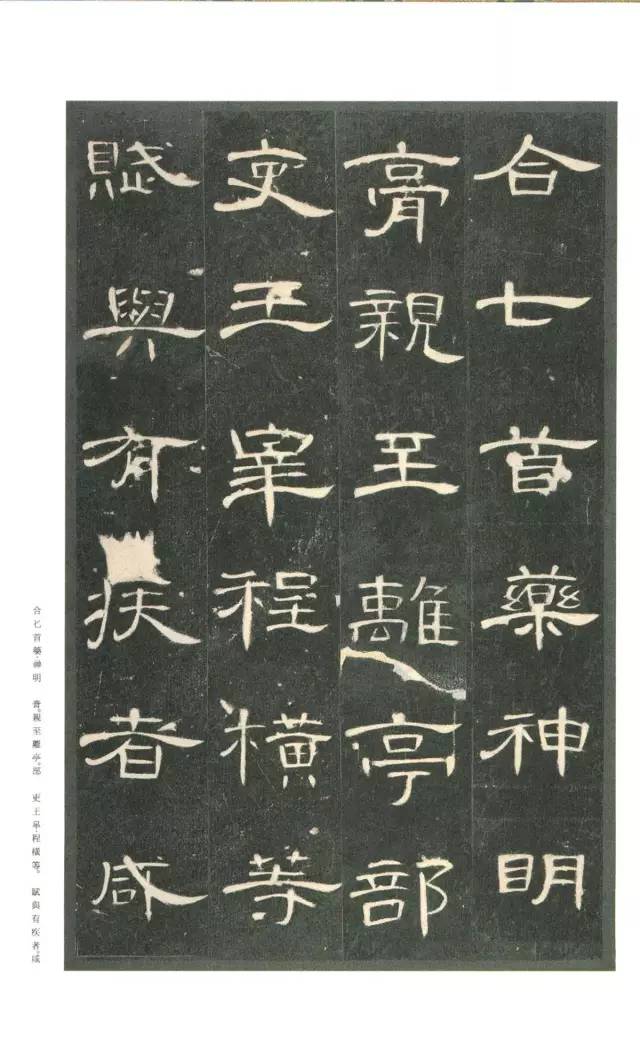 合七首藥神明
膏親至離亭部
吏王宰程橫等
賦與有疾者咸
合七首藥神明 膏。親至離亭。部 吏王皐程橫等。 賦與有疾者。咸